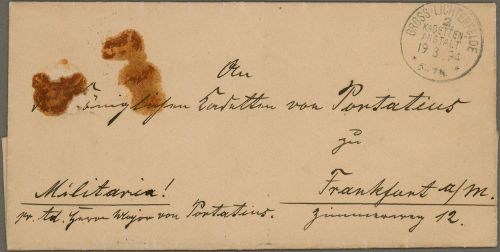 GROSS-LICHTERFELDE
2.
KADETTEN-
ANSTALT
19.3.94
5-6 N.
An
Königlichen Kadetten von Portatius
zu
Militaria!
Frankfurt a/M.
pr. Ad. Herrn Major von Portatius.
Zimmerweg 12.